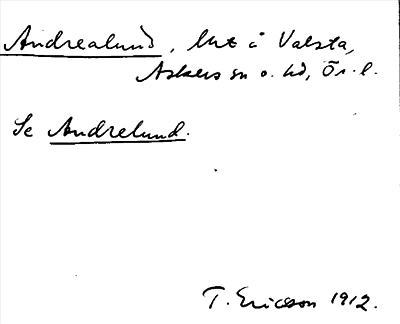 Andrealund, lht å Valsta,
Askers sn o. hd, Ör. l.
Se Andrelund.
T. Ericsson 1912.